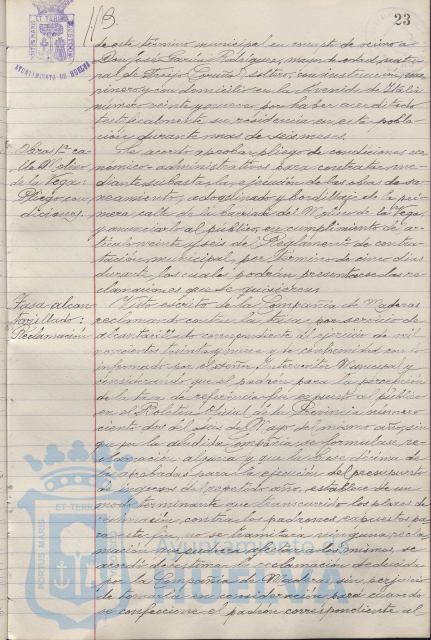 113.
23
AYUNTAMIENTO DE HUELVA
de este término municipal en concepto de vecino a
Don José García Rodríguez, mayor de edad, natu-
ral de soltero, con instrucción, ma-
rinero y con domicilio en la Avenida de Italia
número veinte y nueve, por haber acreditado
testificalmente su residencia en esta pobla-
ción durante mas de seis meses.
Obras 1ª ca-
lle Molino
de la Vega:
Pliego con-
diciones.
Se acordó aprobar pliego de condiciones eco-
nómico-administrativas para contratar, me-
diante subasta, la ejecución de las obras de sa-
neamiento, adoquinado y bordillaje de la pri-
mera calle de la barriada del Molino de la Vega,
y anunciarlo al público, en cumplimiento de ar-
tículo veinte y seis del Reglamento de contra-
tación municipal, por término de cinco días
durante los cuales podrán presentarse las re-
clamaciones que se quisieren.
Tasa alcan-
tarillado:
Reclamación
Visto escrito de la Compañía de Maderas
reclamando contra la tasa, por servicio de
alcantarillado correspondiente al ejercicio de mil
novecientos treinta y nueve y de conformidad con lo
informado por el señor Interventor Municipal y
considerando que el padrón para la percepción
de la tasa de referencia fué expuesto al público
en el Boletín Oficial de la Provincia número
ciento dos del seis de Mayo del mismo año, sin
que por la aludida Compañía se formulase re-
clamación alguna, y que la base décima de
las aprobadas para la ejecución del presupuesto
de ingresos del repetido año, establece de un
modo terminante que transcurrido los plazos de
reclamación contra los padrones expuestos pa-
ra este fin, no se tramitará ninguna recla-
mación que pudiera afectar a los mismos, se
acordó desestimar la reclamación deducida
por la Compañía de Maderas, sin perjuicio
de tomarla en consideración para cuando
se confeccione el padrón correspondiente al
PORTUS MARIS ET TERRAE
Ayuntamiento de